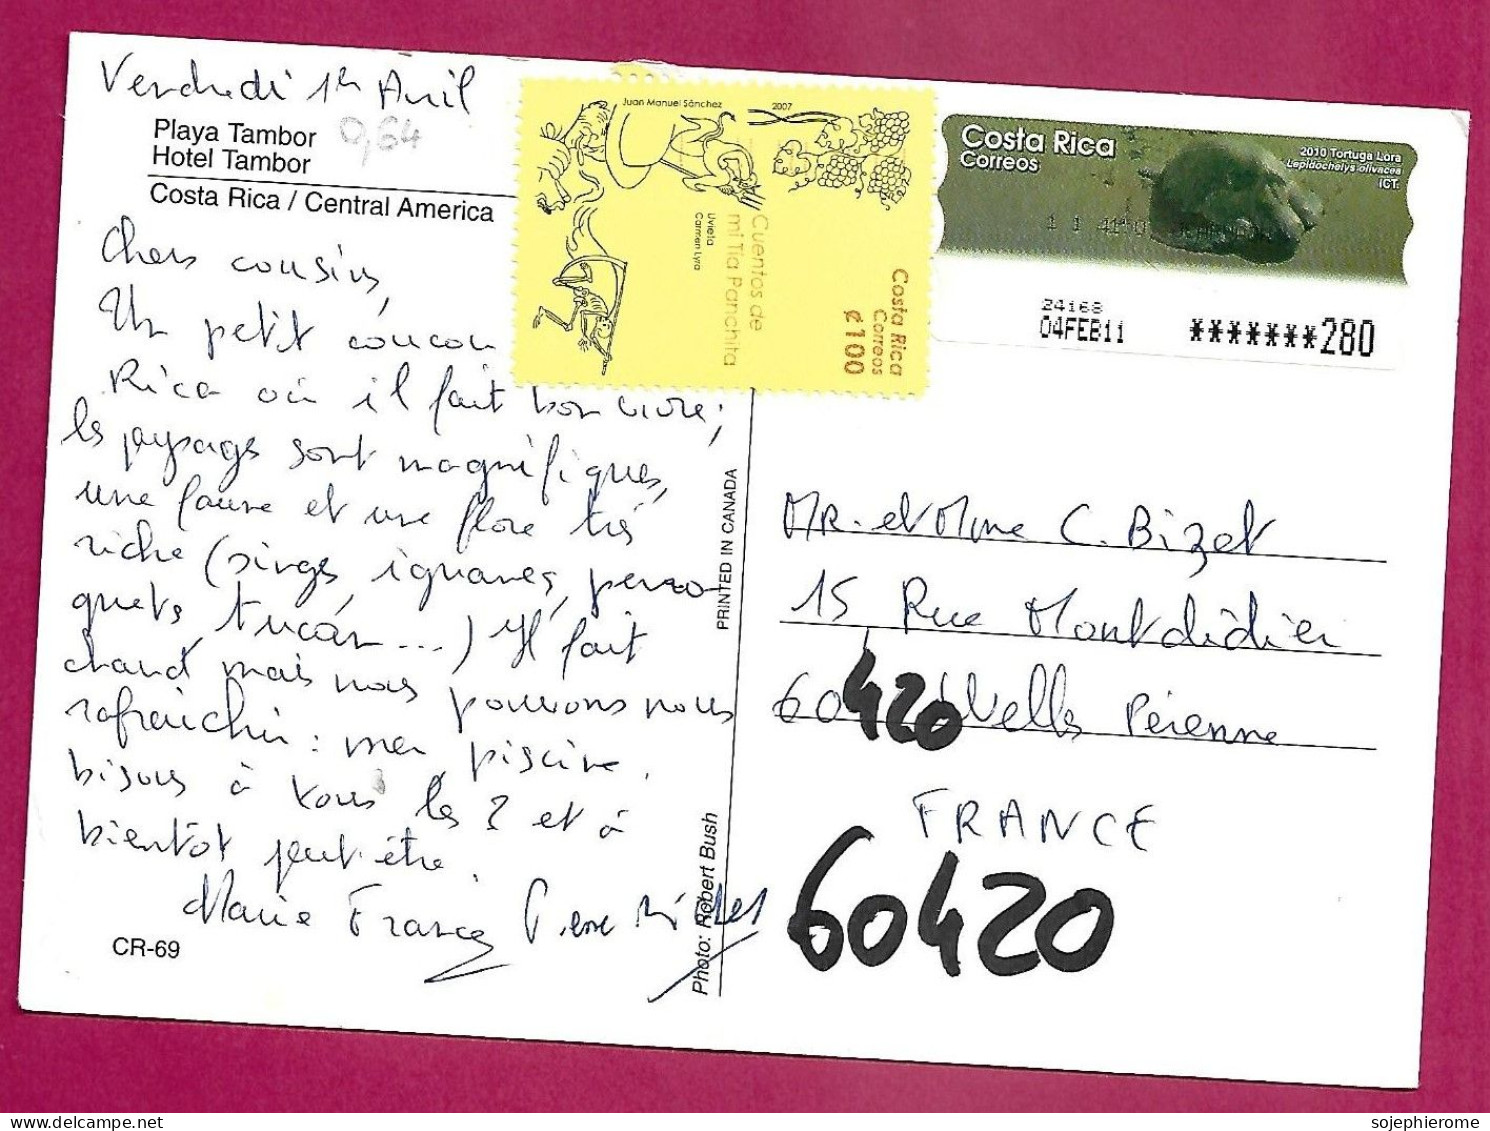 Vendredi 1er Avril
0,64
Playa Tambor
Hotel Tambor
Costa Rica / Central America
Chers cousins,
Un petit coucou
Rica où il fait bon vivre,
les paysages sont magnifiques,
une faune et une flore très
riche (singes, iguanes, perro-
quets, tucán ...) Il fait
chaud mais nous pouvons nous
rafraichir : mer piscine.
bisous à vous les 2 et à
bientôt peut-être.
Marie France Pierre
CR-69
Juan Manuel Sánchez
2007
Cuentos de
mi Tía Panchita
Uvieta
Carmen Lyra
Costa Rica
Correos
¢100
Costa Rica
Correos
2010 Tortuga Lora
Lepidochelys olivacea
ICT.
24168
04FEB11
*******280
PRINTED IN CANADA
Photo: Robert Bush
MR. et Mme C. Bizet
15 Rue Montdidier
60420 Welles Pérenne
FRANCE
60420
sojephierome